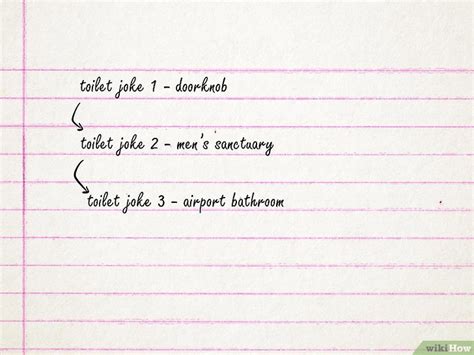 toilet joke 1 - doorknob
toilet joke 2 - men's sanctuary
toilet joke 3 - airport bathroom
wikiHow